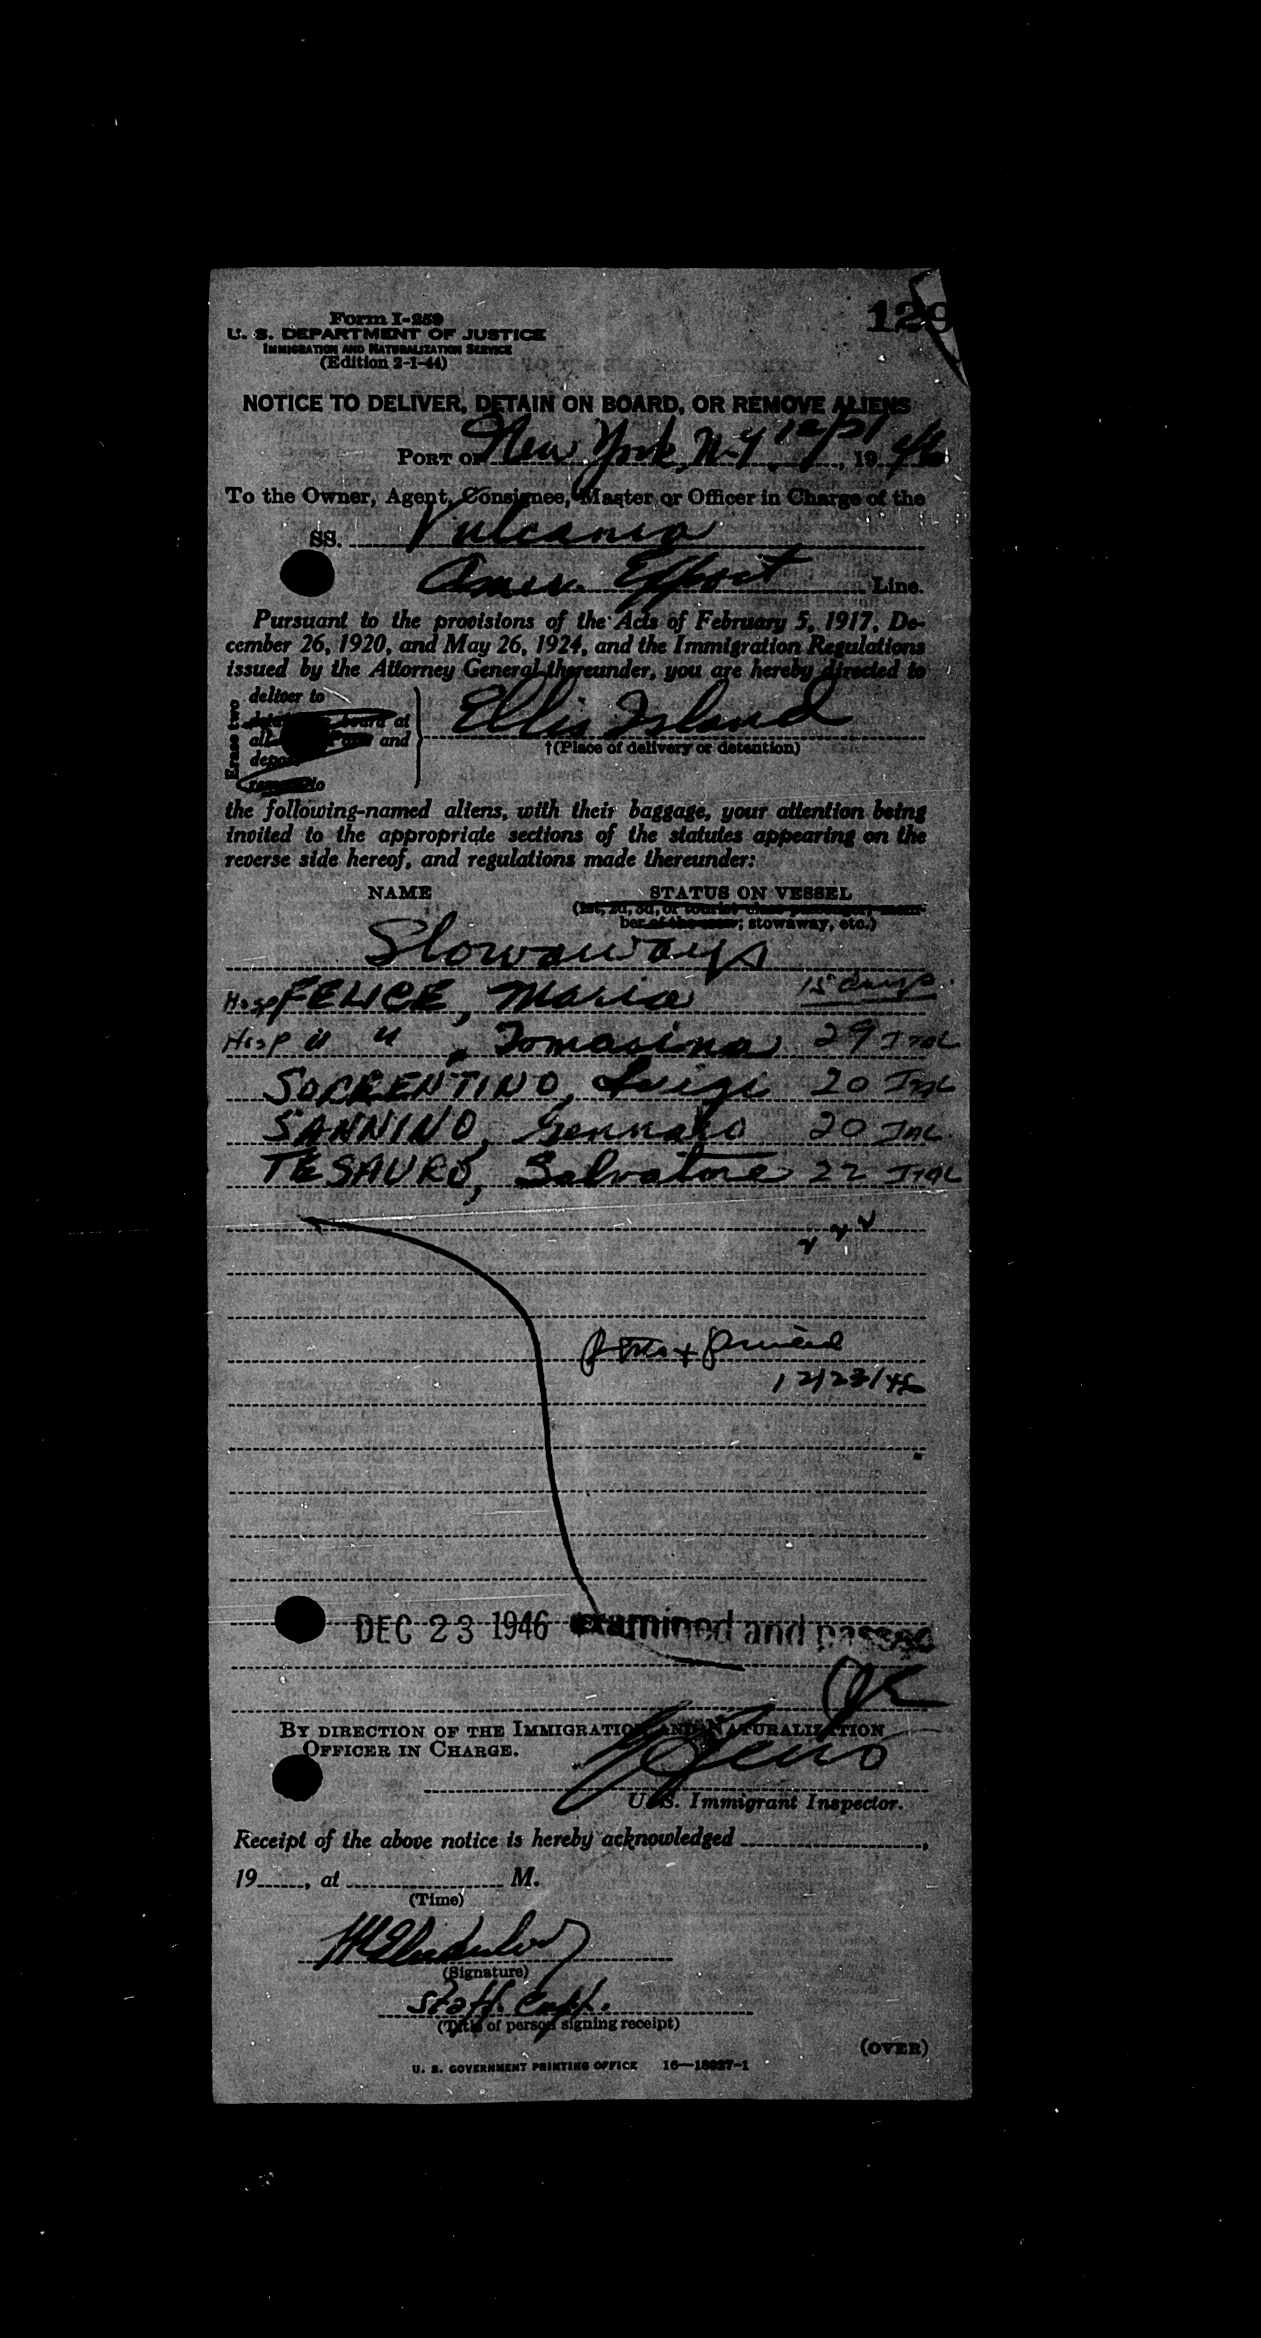 129
Form I-259
U. S. DEPARTMENT OF JUSTICE
IMMIGRATION AND NATURALIZATION SERVICE
(Edition 2-1-44)
NOTICE TO DELIVER, DETAIN ON BOARD, OR REMOVE ALIENS
PORT OF New York, N.Y. 12/21, 1946
To the Owner, Agent, Consignee, Master or Officer in Charge of the
SS. Vulcania
Amer. Export Line.
Pursuant to the provisions of the Acts of February 5, 1917, De-
cember 26, 1920, and May 26, 1924, and the Immigration Regulations
issued by the Attorney General thereunder, you are hereby directed to
Erase two
deliver to
board at
all and
Ellis Island
†(Place of delivery or detention)
the following-named aliens, with their baggage, your attention being
invited to the appropriate sections of the statutes appearing on the
reverse side hereof, and regulations made thereunder:
NAME STATUS ON VESSEL
(1st, 2d, 3d, or tourist class passenger, mem-
ber of the crew; stowaway, etc.)
Stowaways
Hosp FELICE, Maria 15 days
Hosp " " , Tomasina 29 ITAL
SORRENTINO, Luigi 20 ITAL
SANNINO, Gennaro 20 ITAL
TESAURO, Salvatore 22 ITAL
12/23/46
DEC 23 1946 examined and passed
BY DIRECTION OF THE IMMIGRATION AND NATURALIZATION
OFFICER IN CHARGE.
U. S. Immigrant Inspector.
Receipt of the above notice is hereby acknowledged ,
19 , at M.
(Time)
(Signature)
Staff. Capt.
(Title of person signing receipt)
(OVER)
U. S. GOVERNMENT PRINTING OFFICE 16—18937-1